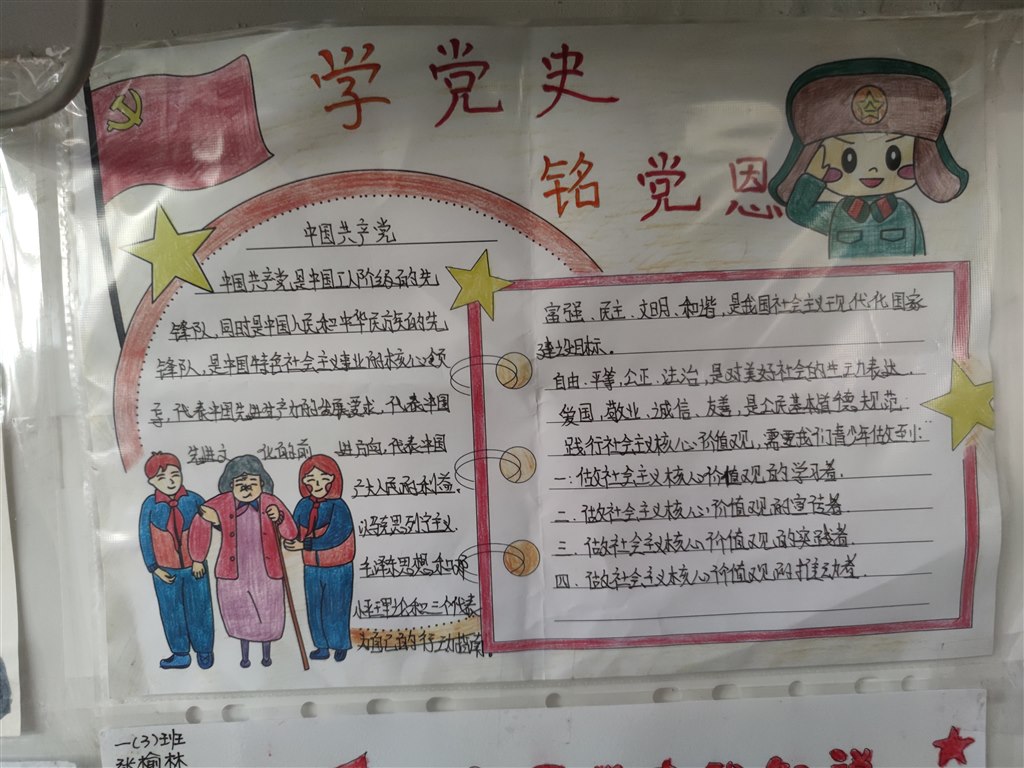 学党史
铭党恩
中国共产党
中国共产党是中国工人阶级的先
锋队,同时是中国人民和中华民族的先
锋队,是中国特色社会主义事业的核心领
导,代表中国先进生产力的发展要求,代表中国
先进文化的前进方向,代表中国
广大人民的利益.
以马克思列宁主义.
毛泽东思想和邓
小平理论和三个代表
为自己的行动指南.
富强.民主.文明.和谐,是我国社会主义现代化国家
建设目标.
自由.平等.公正.法治,是对美好社会的生动表达,
爱国,敬业.诚信.友善,是公民基本道德规范.
践行社会主义核心价值观,需要我们青少年做到:
一:做社会主义核心价值观的学习者.
二.做社会主义核心价值观的宣传者
三.做社会主义核心价值观的实践者.
四.做社会主义核心价值观的推动者.
一(3)班
张榆林